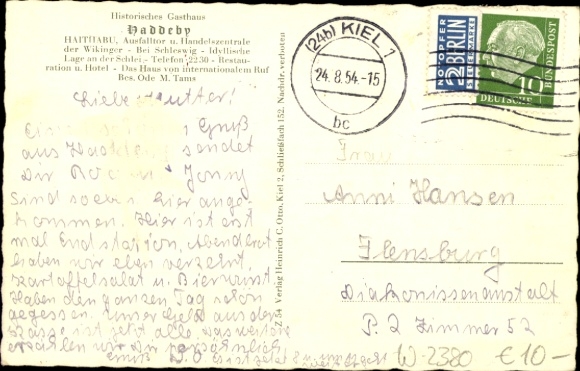 Historisches Gasthaus
Haddeby
HAITHABU, Ausfalltor u. Handelszentrale
der Wikinger - Bei Schleswig - Idyllische
Lage an der Schlei - Telefon 2230 - Restau-
ration u. Hotel - Das Haus von internationalem Ruf
Bes. Ode M. Tams
Liebe Mutter!
Gruß
aus Haddeby sendet
Dir Jonny
Sind soeben hier ange-
kommen. Hier ist erst
mal Endstation. Abendbrot
haben wir eben verzehrt,
Kartoffelsalat u. Bierwurst.
Haben den ganzen Tag schon
gegessen. Unser Geld aus der
Kasse ist jetzt alle. Das weitere
erzählen wir Dir persönlich.
Gruß
S-Z.54 Verlag Heinrich C. Otto, Kiel 2, Schließfach 152. Nachdr. verboten
(24b) KIEL 1
24.8.54.-15
bc
NOTOPFER
2 BERLIN
STEUERMARKE
10
DEUTSCHE
BUNDESPOST
Frau
Anni Hansen
Flensburg
Diakonissenanstalt
P.2 Zimmer 52
W-2380 €10-